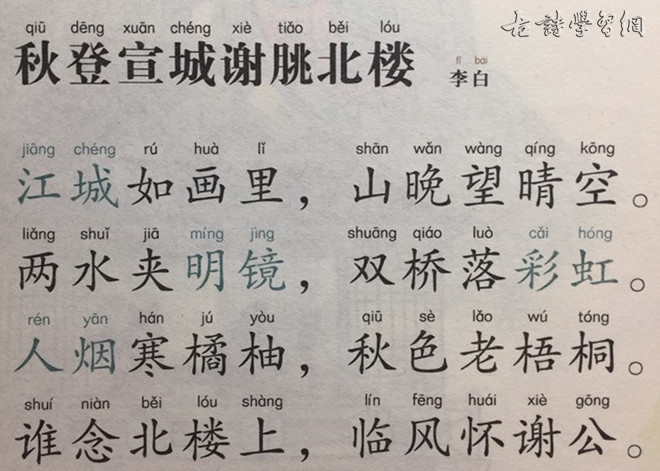 古诗学习網
qiū dēng xuān chéng xiè tiǎo běi lóu
秋登宣城谢朓北楼
lǐ bái
李白
jiāng chéng rú huà lǐ shān wǎn wàng qíng kōng
江城如画里，山晚望晴空。
liǎng shuǐ jiā míng jìng shuāng qiáo luò cǎi hóng
两水夹明镜，双桥落彩虹。
rén yān hán jú yòu qiū sè lǎo wú tóng
人烟寒橘柚，秋色老梧桐。
shuí niàn běi lóu shàng lín fēng huái xiè gōng
谁念北楼上，临风怀谢公。